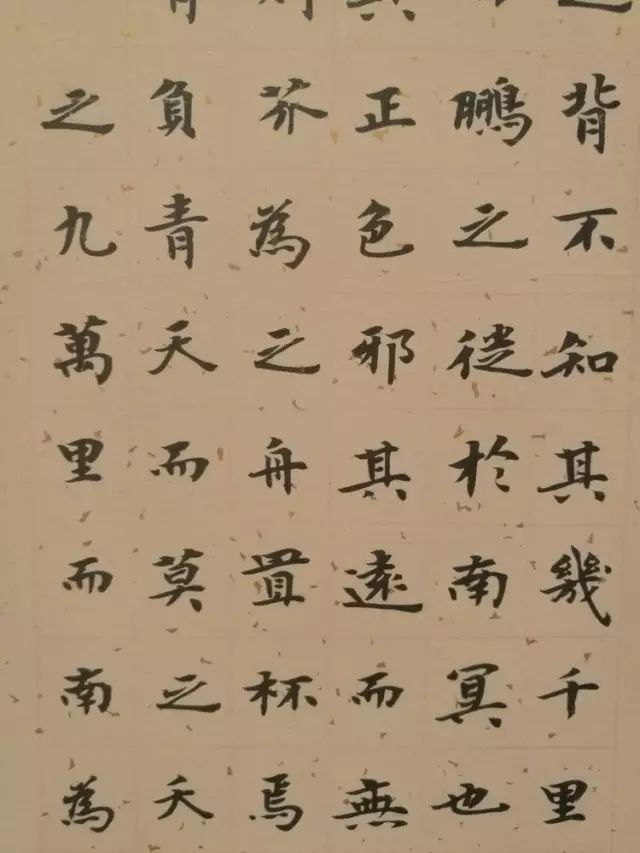 背不知其幾千里
鵬之徙於南冥也
正色邪其遠而無
芥為之舟置杯焉
負青天而莫之夭
之九萬里而南為